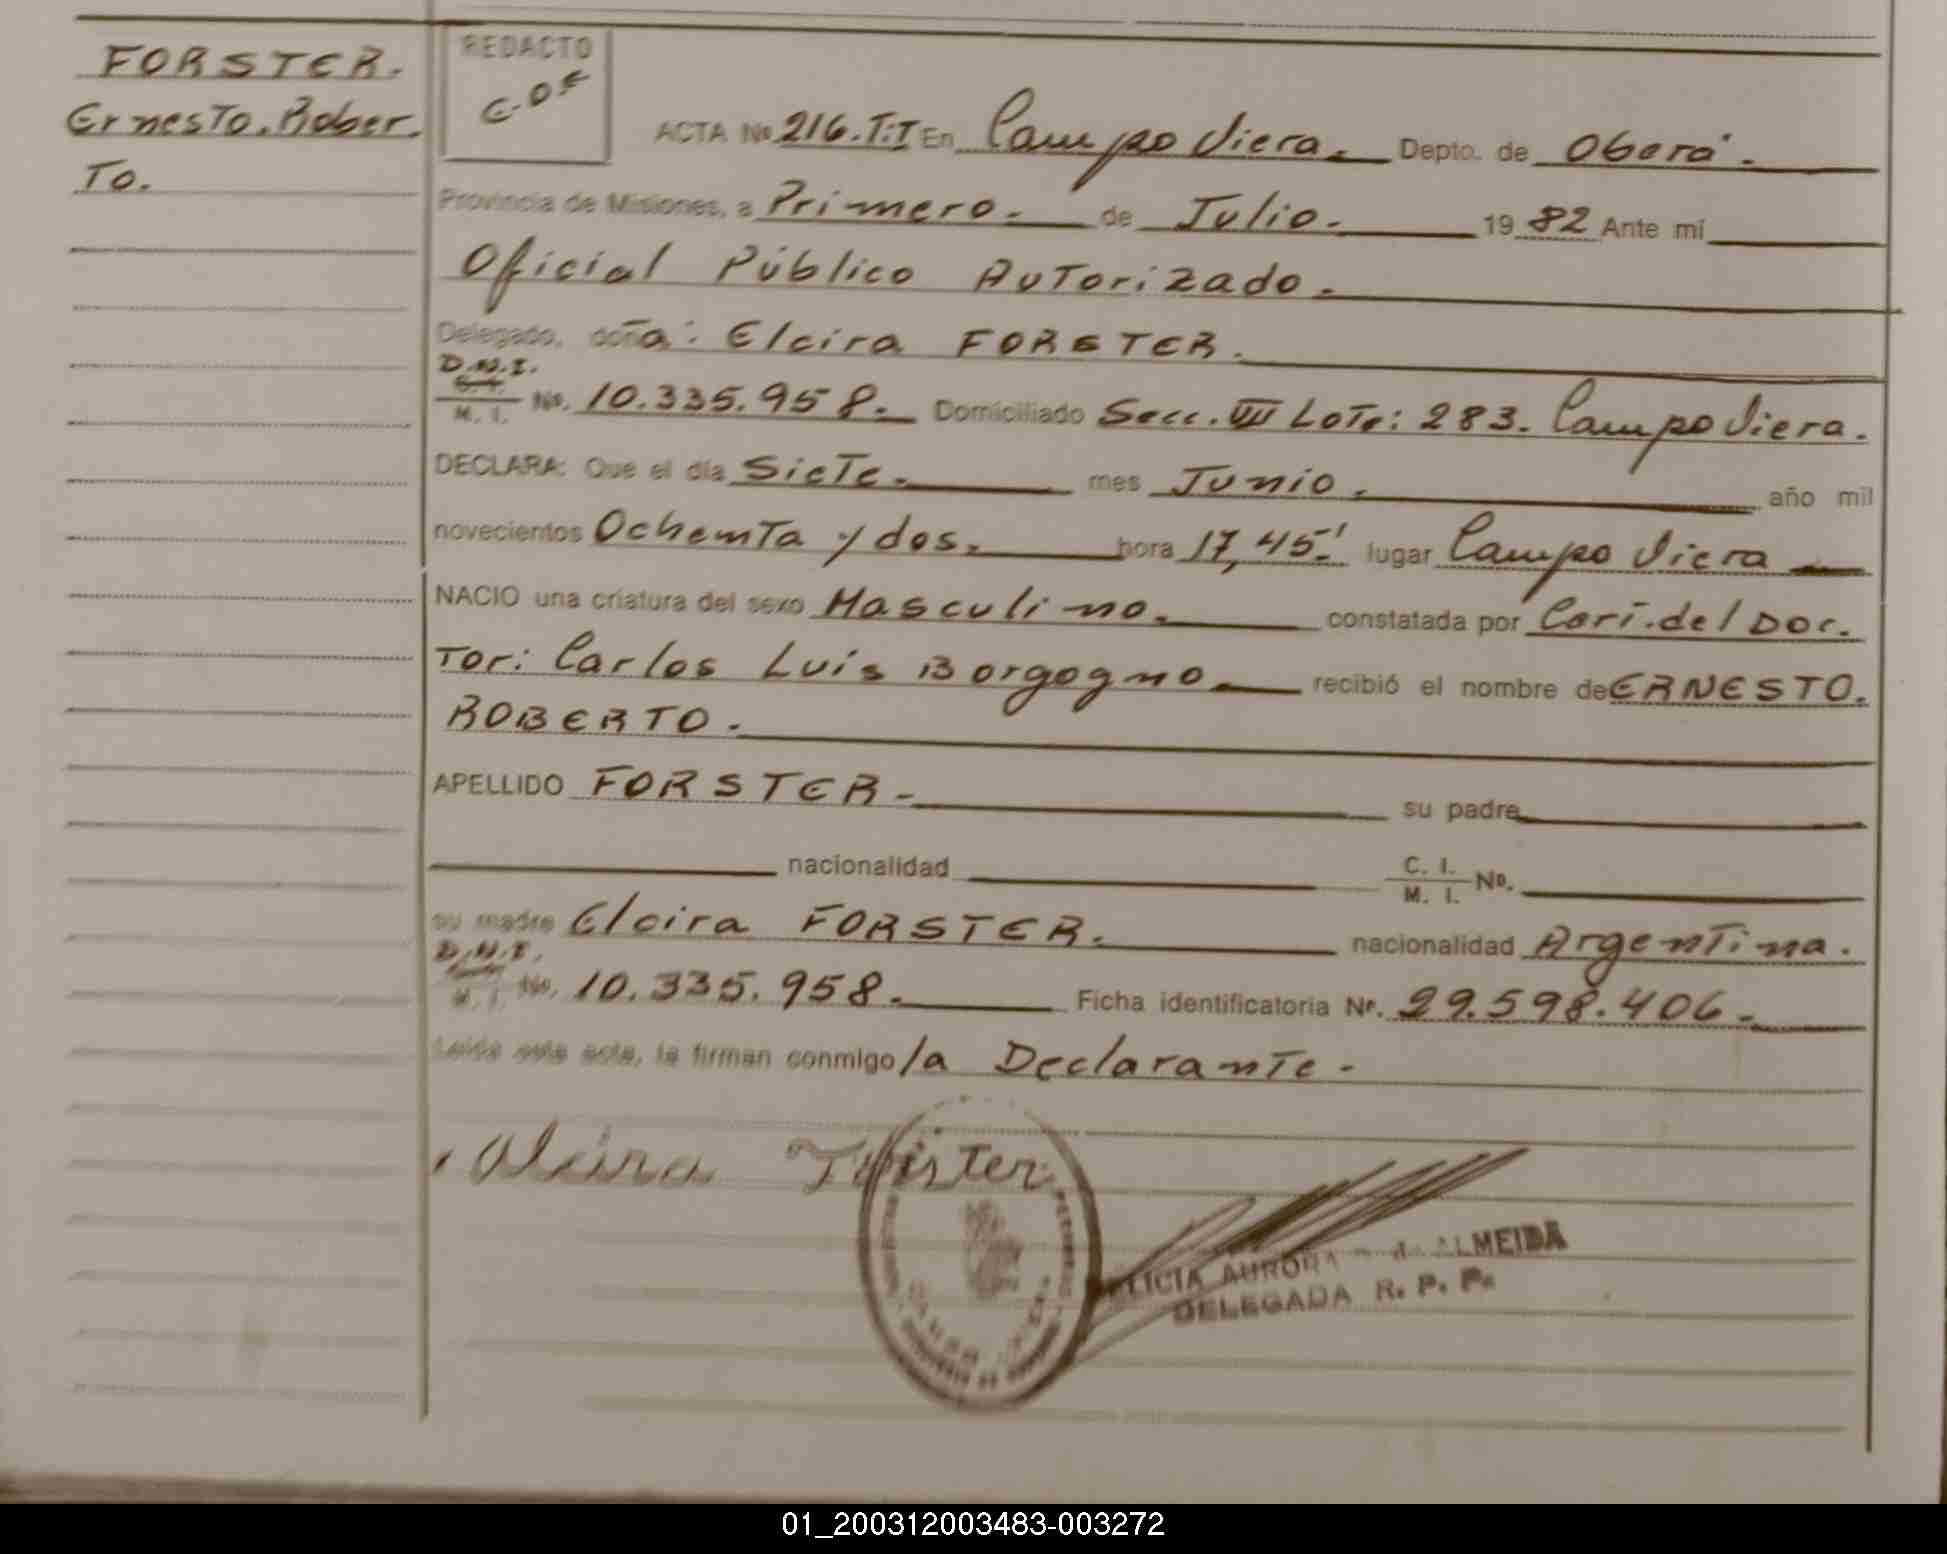 FORSTER.
Ernesto. Rober
To.
REDACTO
ACTA Nº 216. T:I En Campo Viera. Depto. de Oberá.
Provincia de Misiones, a Primero. de Julio. 19 82 Ante mí
Oficial Público Autorizado.
Delegado, doña: Elcira FORSTER.
D.N.I.
M. I. No. 10.335.958. Domiciliado Secc. VIII Lote: 283. Campo Viera.
DECLARA: Que el día Siete. mes Junio. año mil
novecientos Ochenta y dos. hora 17,45' lugar Campo Viera
NACIO una criatura del sexo Masculino. constatada por Certi. del Doc.
Tor: Carlos Luis Borgogno recibió el nombre de ERNESTO.
ROBERTO.
APELLIDO FORSTER. su padre
nacionalidad C. I.
M. I. No.
su madre Elcira FORSTER. nacionalidad Argentina.
D.N.I.
M. I. No. 10.335.958. Ficha identificatoria Nº. 29.598.406.
Leída esta acta, la firman conmigo la Declarante.
AURORA de ALMEIDA
DELEGADA R. P. P.
01_200312003483-003272